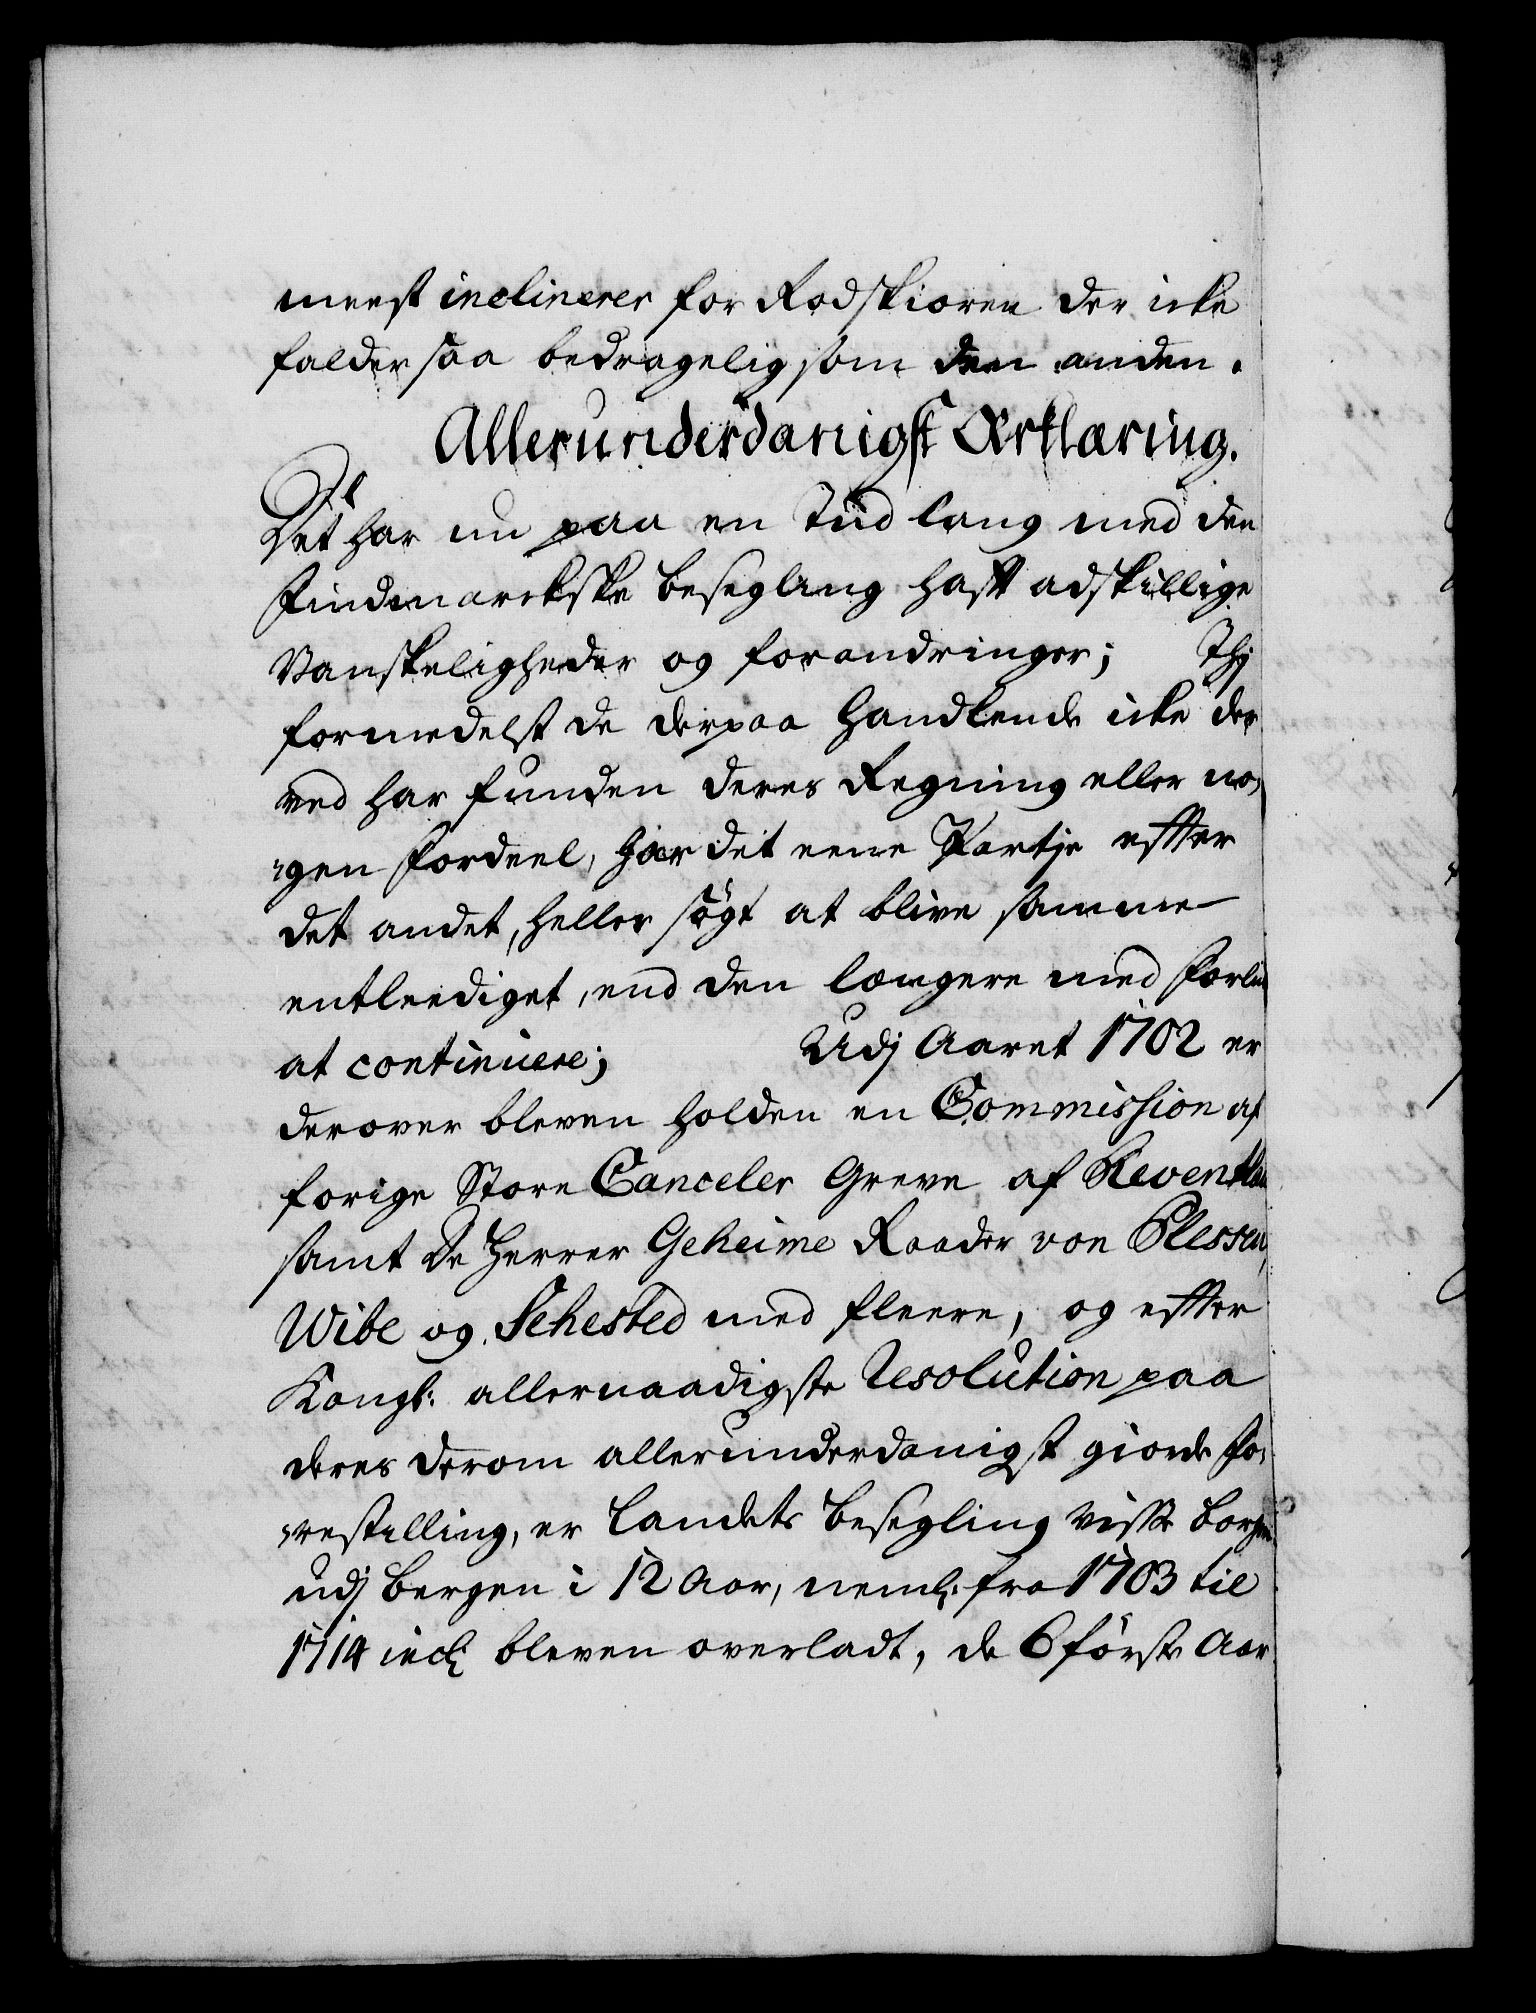 meest inclinerer for Rodskioren der icke
falder saa bedragelig som den anden.
Allerunderdanigst Ærklæring.
Det har nu paa en Tiid lang med den
Findmarckske besegling hafft adskillige
Vanskeligheder og forandringer; Thj
formedelst de derpaa Handlende icke der
ved har funden deres Regning eller no¬
gen fordeel, har det eene Partje effter
det andet, heller søgt at blive samme
entleediget, end den længere med forliis
at continuere; Udj Aaret 1702 er
derover bleven holden en Commission af
forige Store Canceler Greve af Reventlau
samt De Herrer Geheime Raader von Plessen,
Wibe og Sehested med fleere, og effter
Kongl: allernaadigste Resolution paa
deres derom allerunderdanigst giorde fo¬
restilling, er Landets besegling visse borgere
udj bergen i 12 Aar, neml: fra 1703 til
1714 incl: bleven overladt, de 6 første Aar